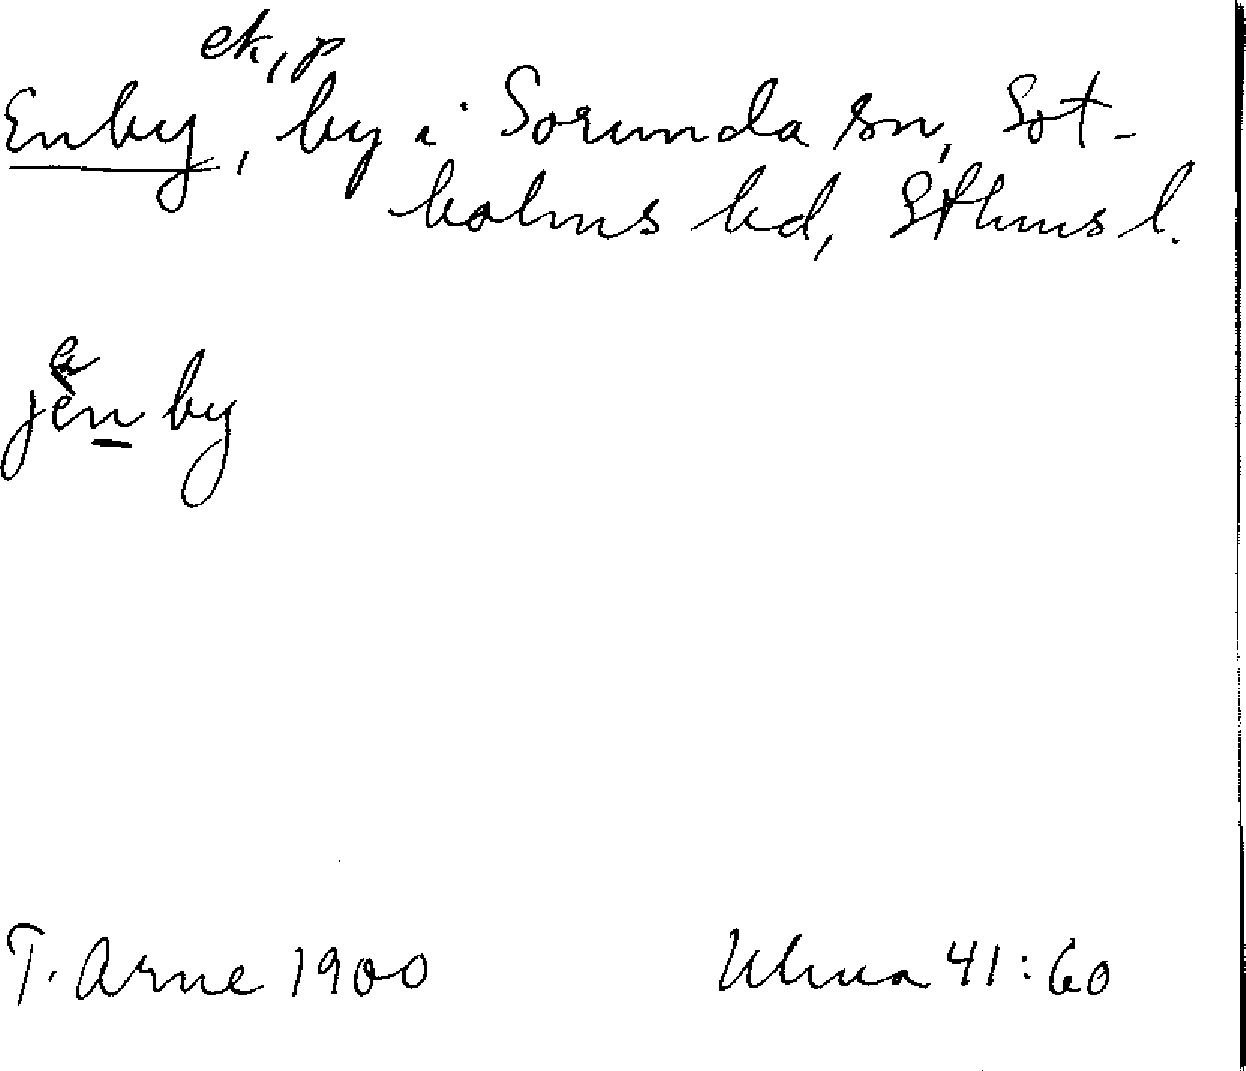 ek, p
Enby, by i Sorunda sn, Sot-
holms hd, Sthms l.
jenby
T. Arne 1900 Uhua 41:60